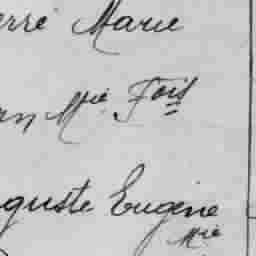 erre Marie
n Mie Fois
guste Eugène
Mie